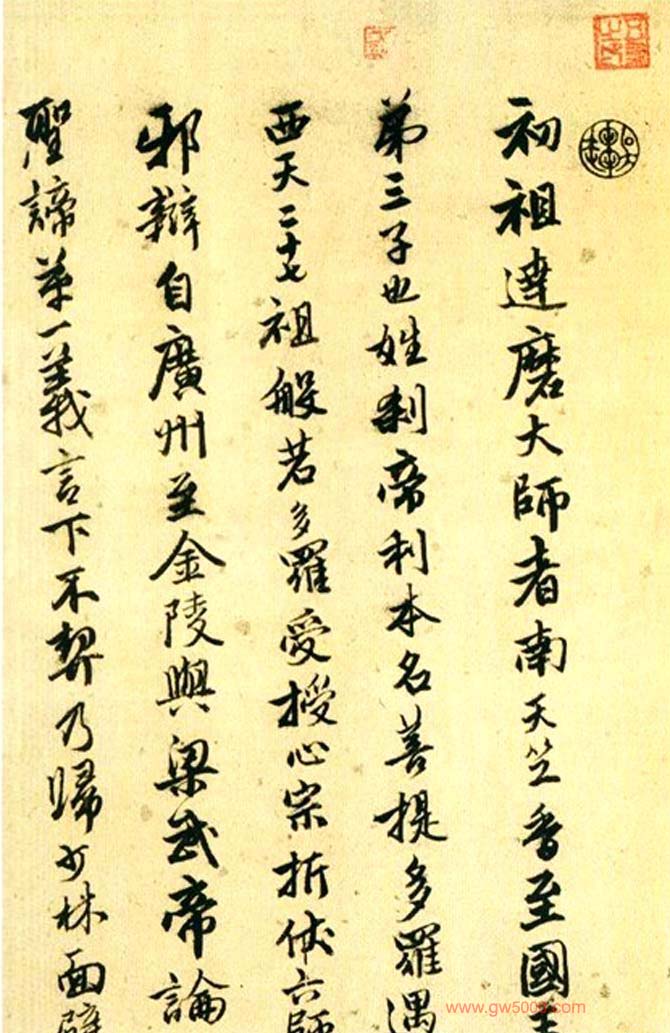 初祖達磨大師者南天竺香至國王
第三子也姓刹帝利本名菩提多羅遇
西天二十七祖般若多羅受授心宗折伏六師
邪辯自廣州至金陵與梁武帝論
聖諦第一義言下不契乃歸少林面壁
www.gw5000.com